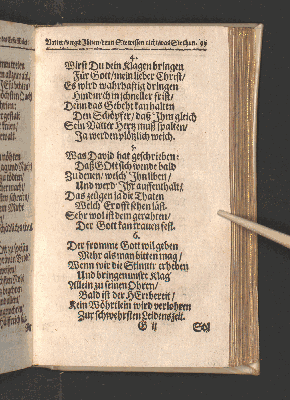 Vatter vergib Jhnen denn Sie wissen nicht was Sie thun. 
4.
Wirst Du dein Klagen bringen
Für Gott/ mein lieber Christ/
Es wird wahrhafftig dringen
Hindurch in schneller frist/
Dann das Gebeht kan halten
Den Schöpfer/ daß Jhm gleich
Sein Vatter Hertz muß spalten/
Ja werden plötzlich weich.
5.
Was David hat geschrieben:
Daß GOtt sich wende bald
Zu denen/ welch' Jhn liben/
Und werd' Jhr auffenthalt/
Das zeügen ja die Thaten
Welch' Er offt sehen läst.
Sehr wol ist dem gerahten/
Der Gott kan trauen fest.
6.
Der fromme Gott wil geben
Mehr als man bitten mag/
Wenn wir die Stimm' erheben
Und bringen unsre Klag'
Allein zu seinen Ohren/
Bald ist der HErr bereit/
Kein Wöhrtlein wird verlohren
Zur schwehrsten Leidenszeit.
G ij Sol